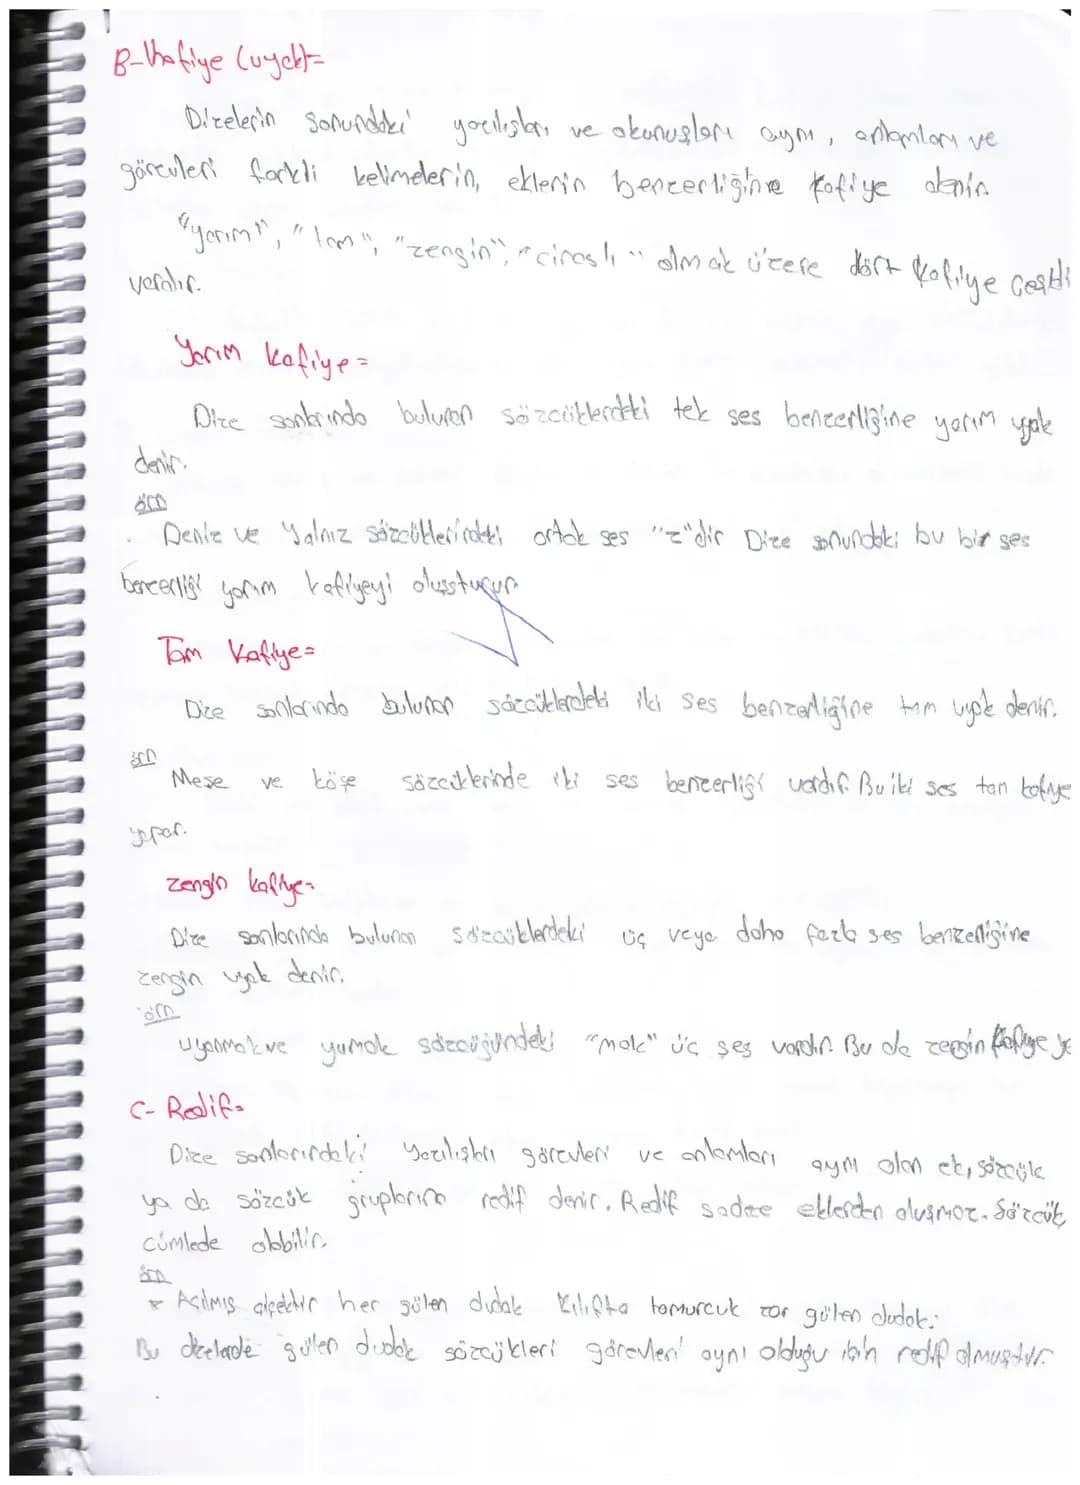 B-Kafiye (uyak)=
Dizelerin sonundaki yazılışları ve okunuşları aynı, anlamları ve
görevleri farklı kelimelerin, eklerin benzerliğine kafiye denir.
"yarım", "tam", "zengin", "cinaslı" olmak üzere dört kafiye çeşidi
vardır.
Yarım kafiye=
Dize sonlarında bulunan sözcüklerdeki tek ses benzerliğine yarım uyak
denir.
örn
Deniz ve Yalnız sözcüklerindeki ortak ses "z"dir Dize sonundaki bu bir ses
benzerliği yarım kafiyeyi oluşturur
Tam Kafiye=
Dize sonlarında bulunan sözcüklerdeki iki ses benzerliğine tam uyak denir.
örn
Meşe ve köşe sözcüklerinde iki ses benzerliği vardır. Bu iki ses tam kafiye
yapar.
zengin kafiye=
Dize sonlarında bulunan sözcüklerdeki üç veya daha fazla ses benzerliğine
zengin uyak denir.
örn
Uyanmak ve yumak sözcüğündeki "mak" üç ses vardır. Bu da zengin kafiye
C- Redif=
Dize sonlarındaki Yazılışları görevleri ve anlamları aynı olan ek, sözcük
ya da sözcük gruplarına redif denir. Redif sadece eklerden oluşmaz. Sözcük,
cümlede olabilir.
örn
* Açılmış çiçektir her gülen dudak Kılıfta tomurcuk zor gülen dudak.
Bu dizelerde gülen dudak sözcükleri görevleri aynı olduğu için redif olmuştur.